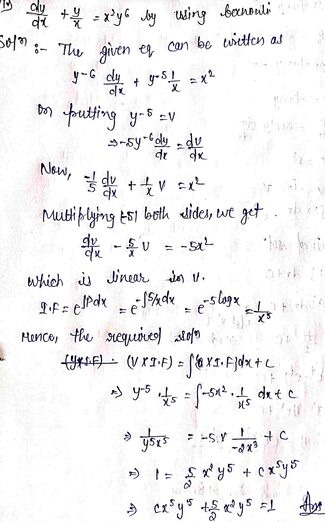 dy/dx + y/x = x²y⁶ by using bernouli
Solⁿ :- The given eq can be written as
y⁻⁶ dy/dx + y⁻⁵ 1/x = x²
on putting y⁻⁵ = v
⇒ -5y⁻⁶ dy/dx = dv/dx
Now, -1/5 dv/dx + 1/x v = x²
Multiplying (-5) both sides, we get
dv/dx - 5/x v = -5x²
which is linear in v.
I.F = e^∫Pdx = e^-∫5/x dx = e^-5logx = 1/x⁵
Hence, the required solⁿ
(y×I.F) . (V×I.F) = ∫(Q×I.F)dx + c
⇒ y⁻⁵ . 1/x⁵ = ∫-5x² . 1/x⁵ dx + c
⇒ 1/y⁵x⁵ = -5. 1/-2x² + c
⇒ 1 = 5/2 x³y⁵ + cx⁵y⁵
⇒ cx⁵y⁵ + 5/2 x³y⁵ = 1 Ans